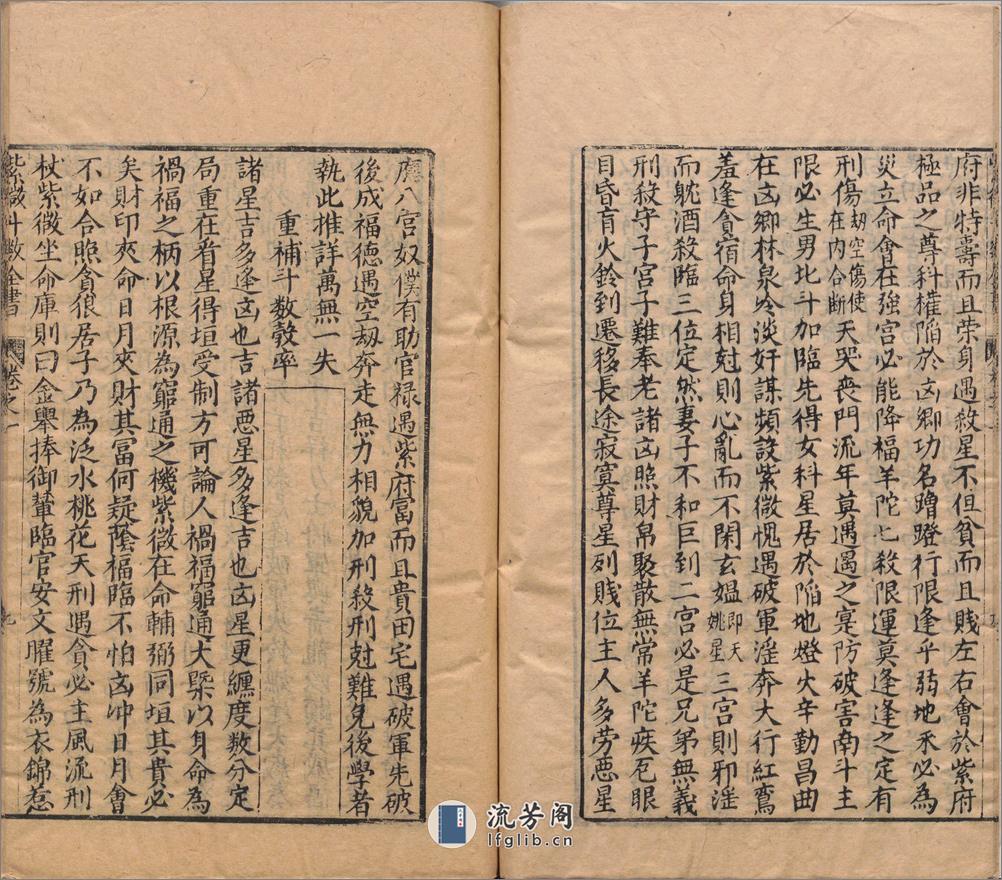 府非特壽而且荣身遇殺星不但貧而且賤左右會於紫府
極品之尊科權陷於凶鄉功名蹭蹬行限逢乎弱地未必為
災立命會在強宮必能降福羊陀七殺限運莫逢逢之定有
刑傷劫空傷使在內合斷天哭喪門流年莫遇遇之寔防破害南斗主
限必生男北斗加臨先得女科星居於陷地燈火辛勤昌曲
在凶鄉林泉冷淡奸謀頻設紫微愧遇破軍淫奔大行紅鸞
羞逢貪宿命身相尅則心亂而不閑玄媪即天姚星三宮則邪淫
而躭酒殺臨三位定然妻子不和巨到二宮必是兄弟無義
刑殺守子宮子難奉老諸凶照財帛聚散無常羊陀疾厄眼
目昏盲火鈴到遷移長途寂寞尊星列賤位主人多劳惡星
應八宮奴僕有助官禄遇紫府富而且貴田宅遇破軍先破
後成福德遇空劫奔走無力相貌加刑殺刑尅難免後學者
執此推詳萬無一失
重補斗數彀率
諸星吉多逢凶也吉諸惡星多逢吉也凶星更纏度数分定
局重在看星得垣受制方可論人禍福窮通大槩以身命為
禍福之柄以根源為窮通之機紫微在命輔弼同垣其貴必
矣財印夾命日月夾財其富何疑蔭福臨不怕凶冲日月會
不如合照貪狼居子乃為泛水桃花天刑遇貪必主風流刑
杖紫微坐命庫則曰金轝捧御輦臨官安文曜號為衣錦惹
紫微斗數全書 卷之一 九
流芳阁
lfglib.cn